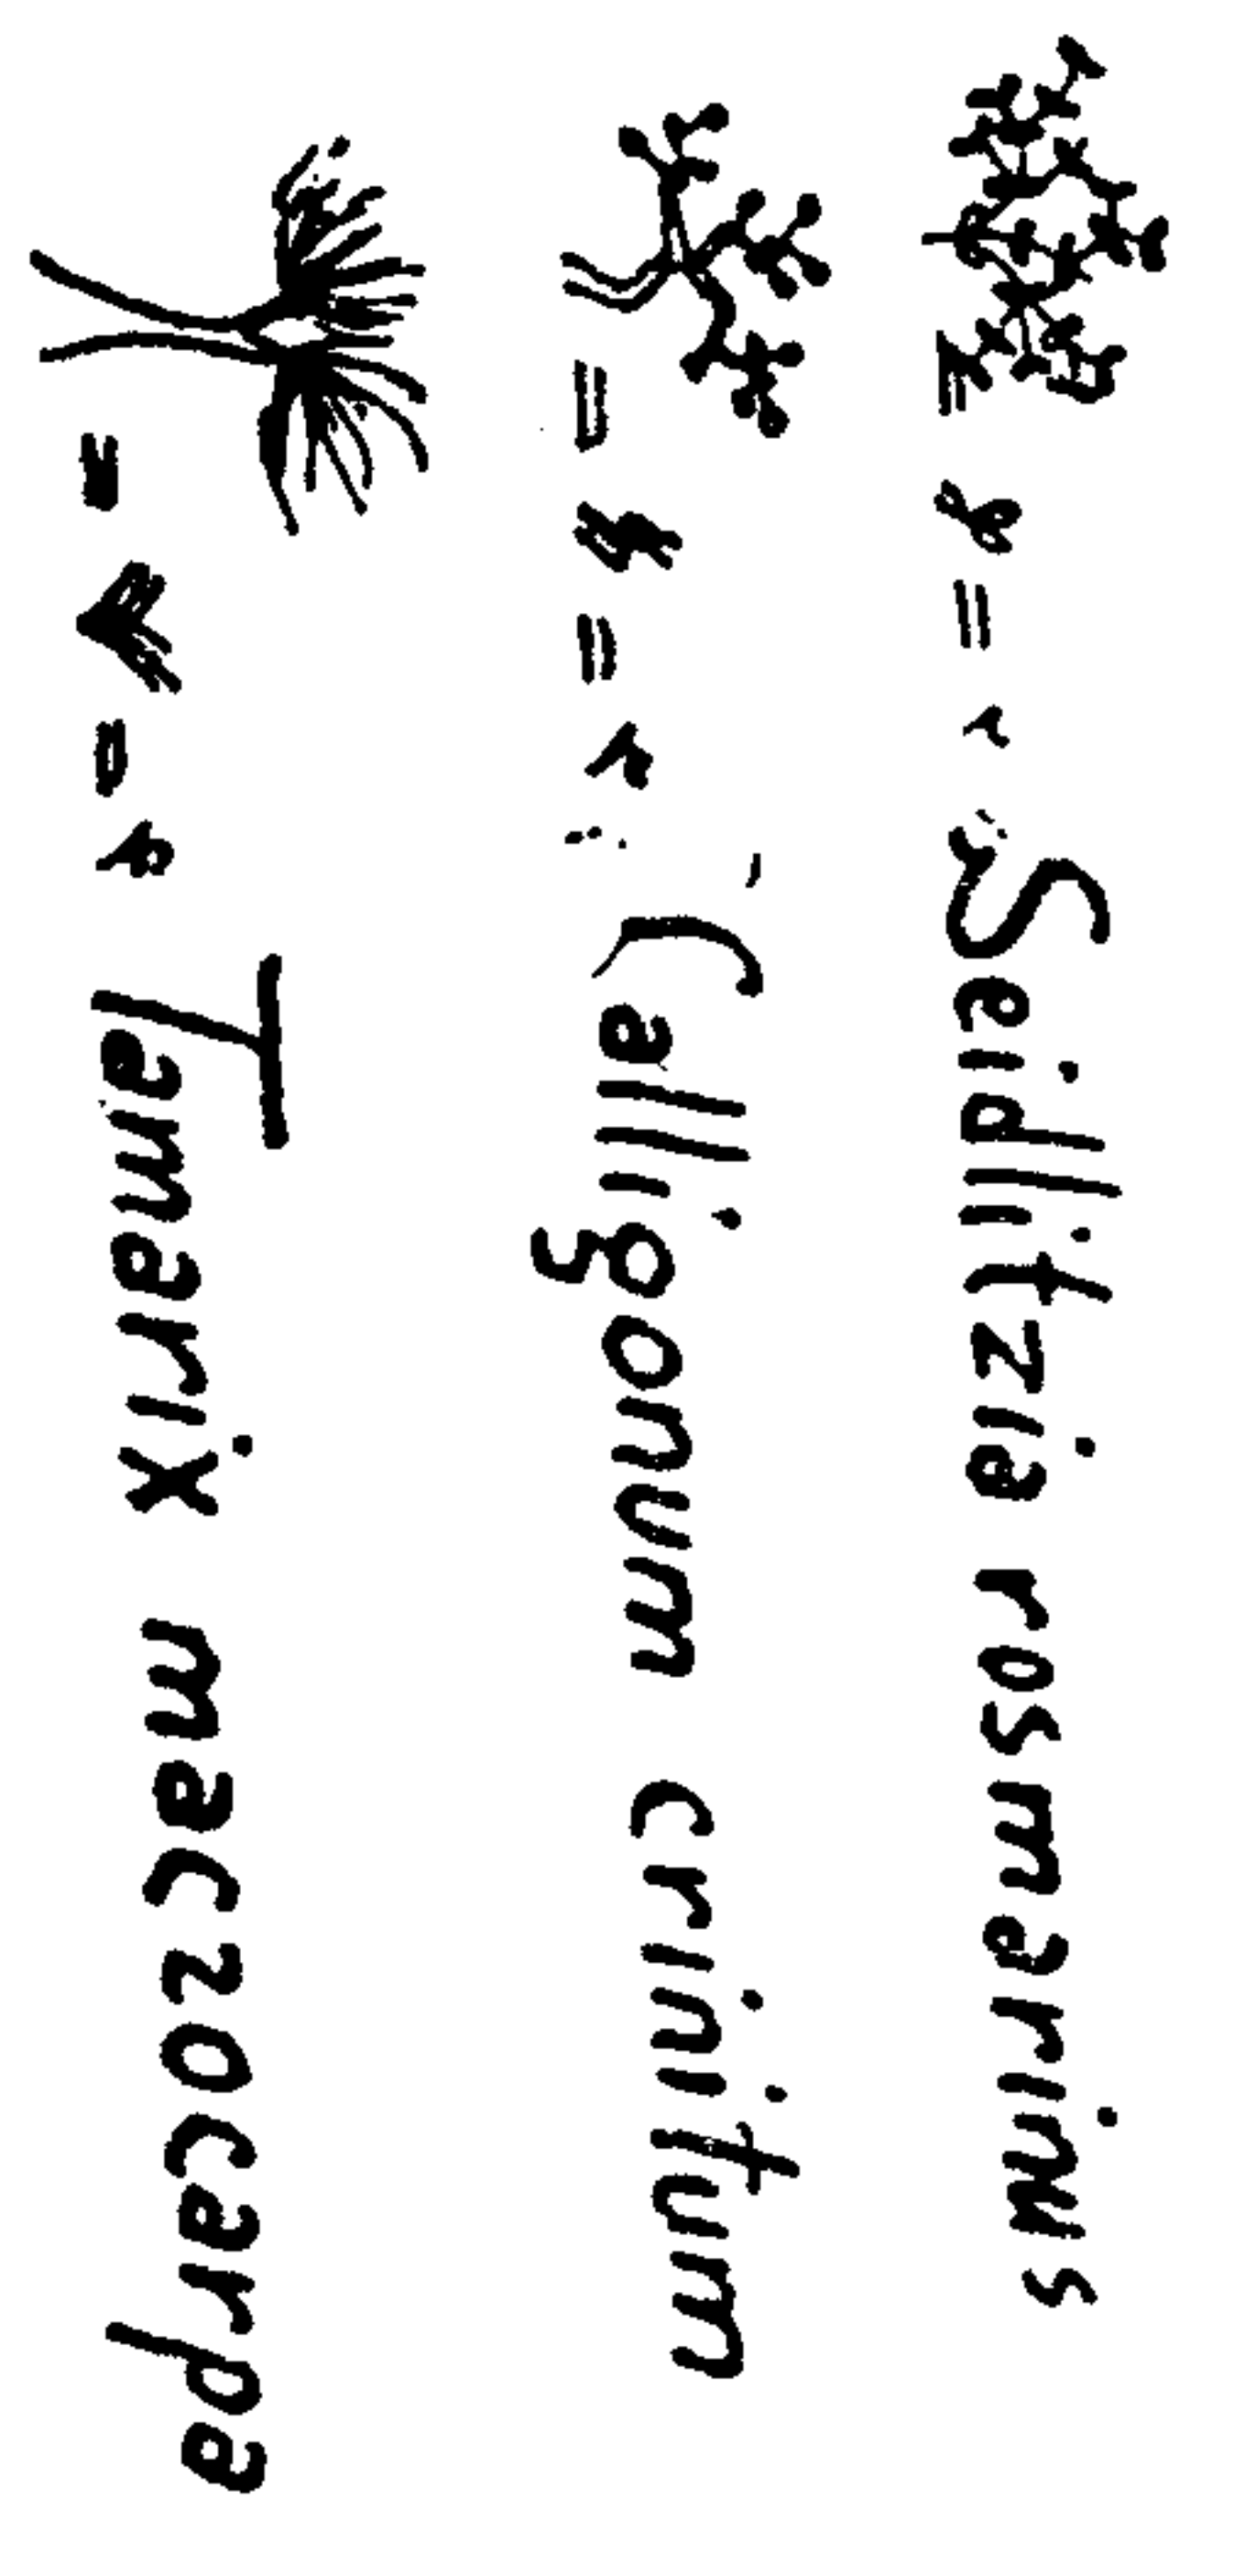 Seidlitzia rosmarinus
Calligonum crinitum
Tamarix maczocarpa